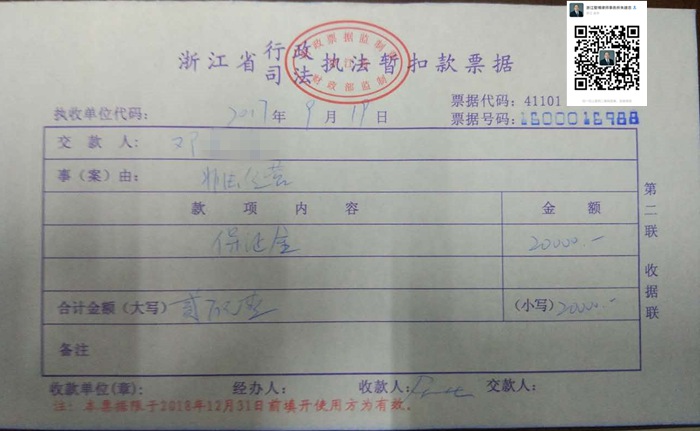 浙江省行政司法执法暂扣款票据
执收单位代码: 2017年9月19日
票据代码: 41101
票据号码: 1600016988
交款人: 邓
事(案)由: 非法经营
款项内容 金额
保证金 20000.-
合计金额(大写) 贰万整 (小写) 20000.-
备注
第二联 收据联
收款单位(章): 经办人: 收款人: 交款人:
注: 本票据限于2018年12月31日前填开使用方为有效。